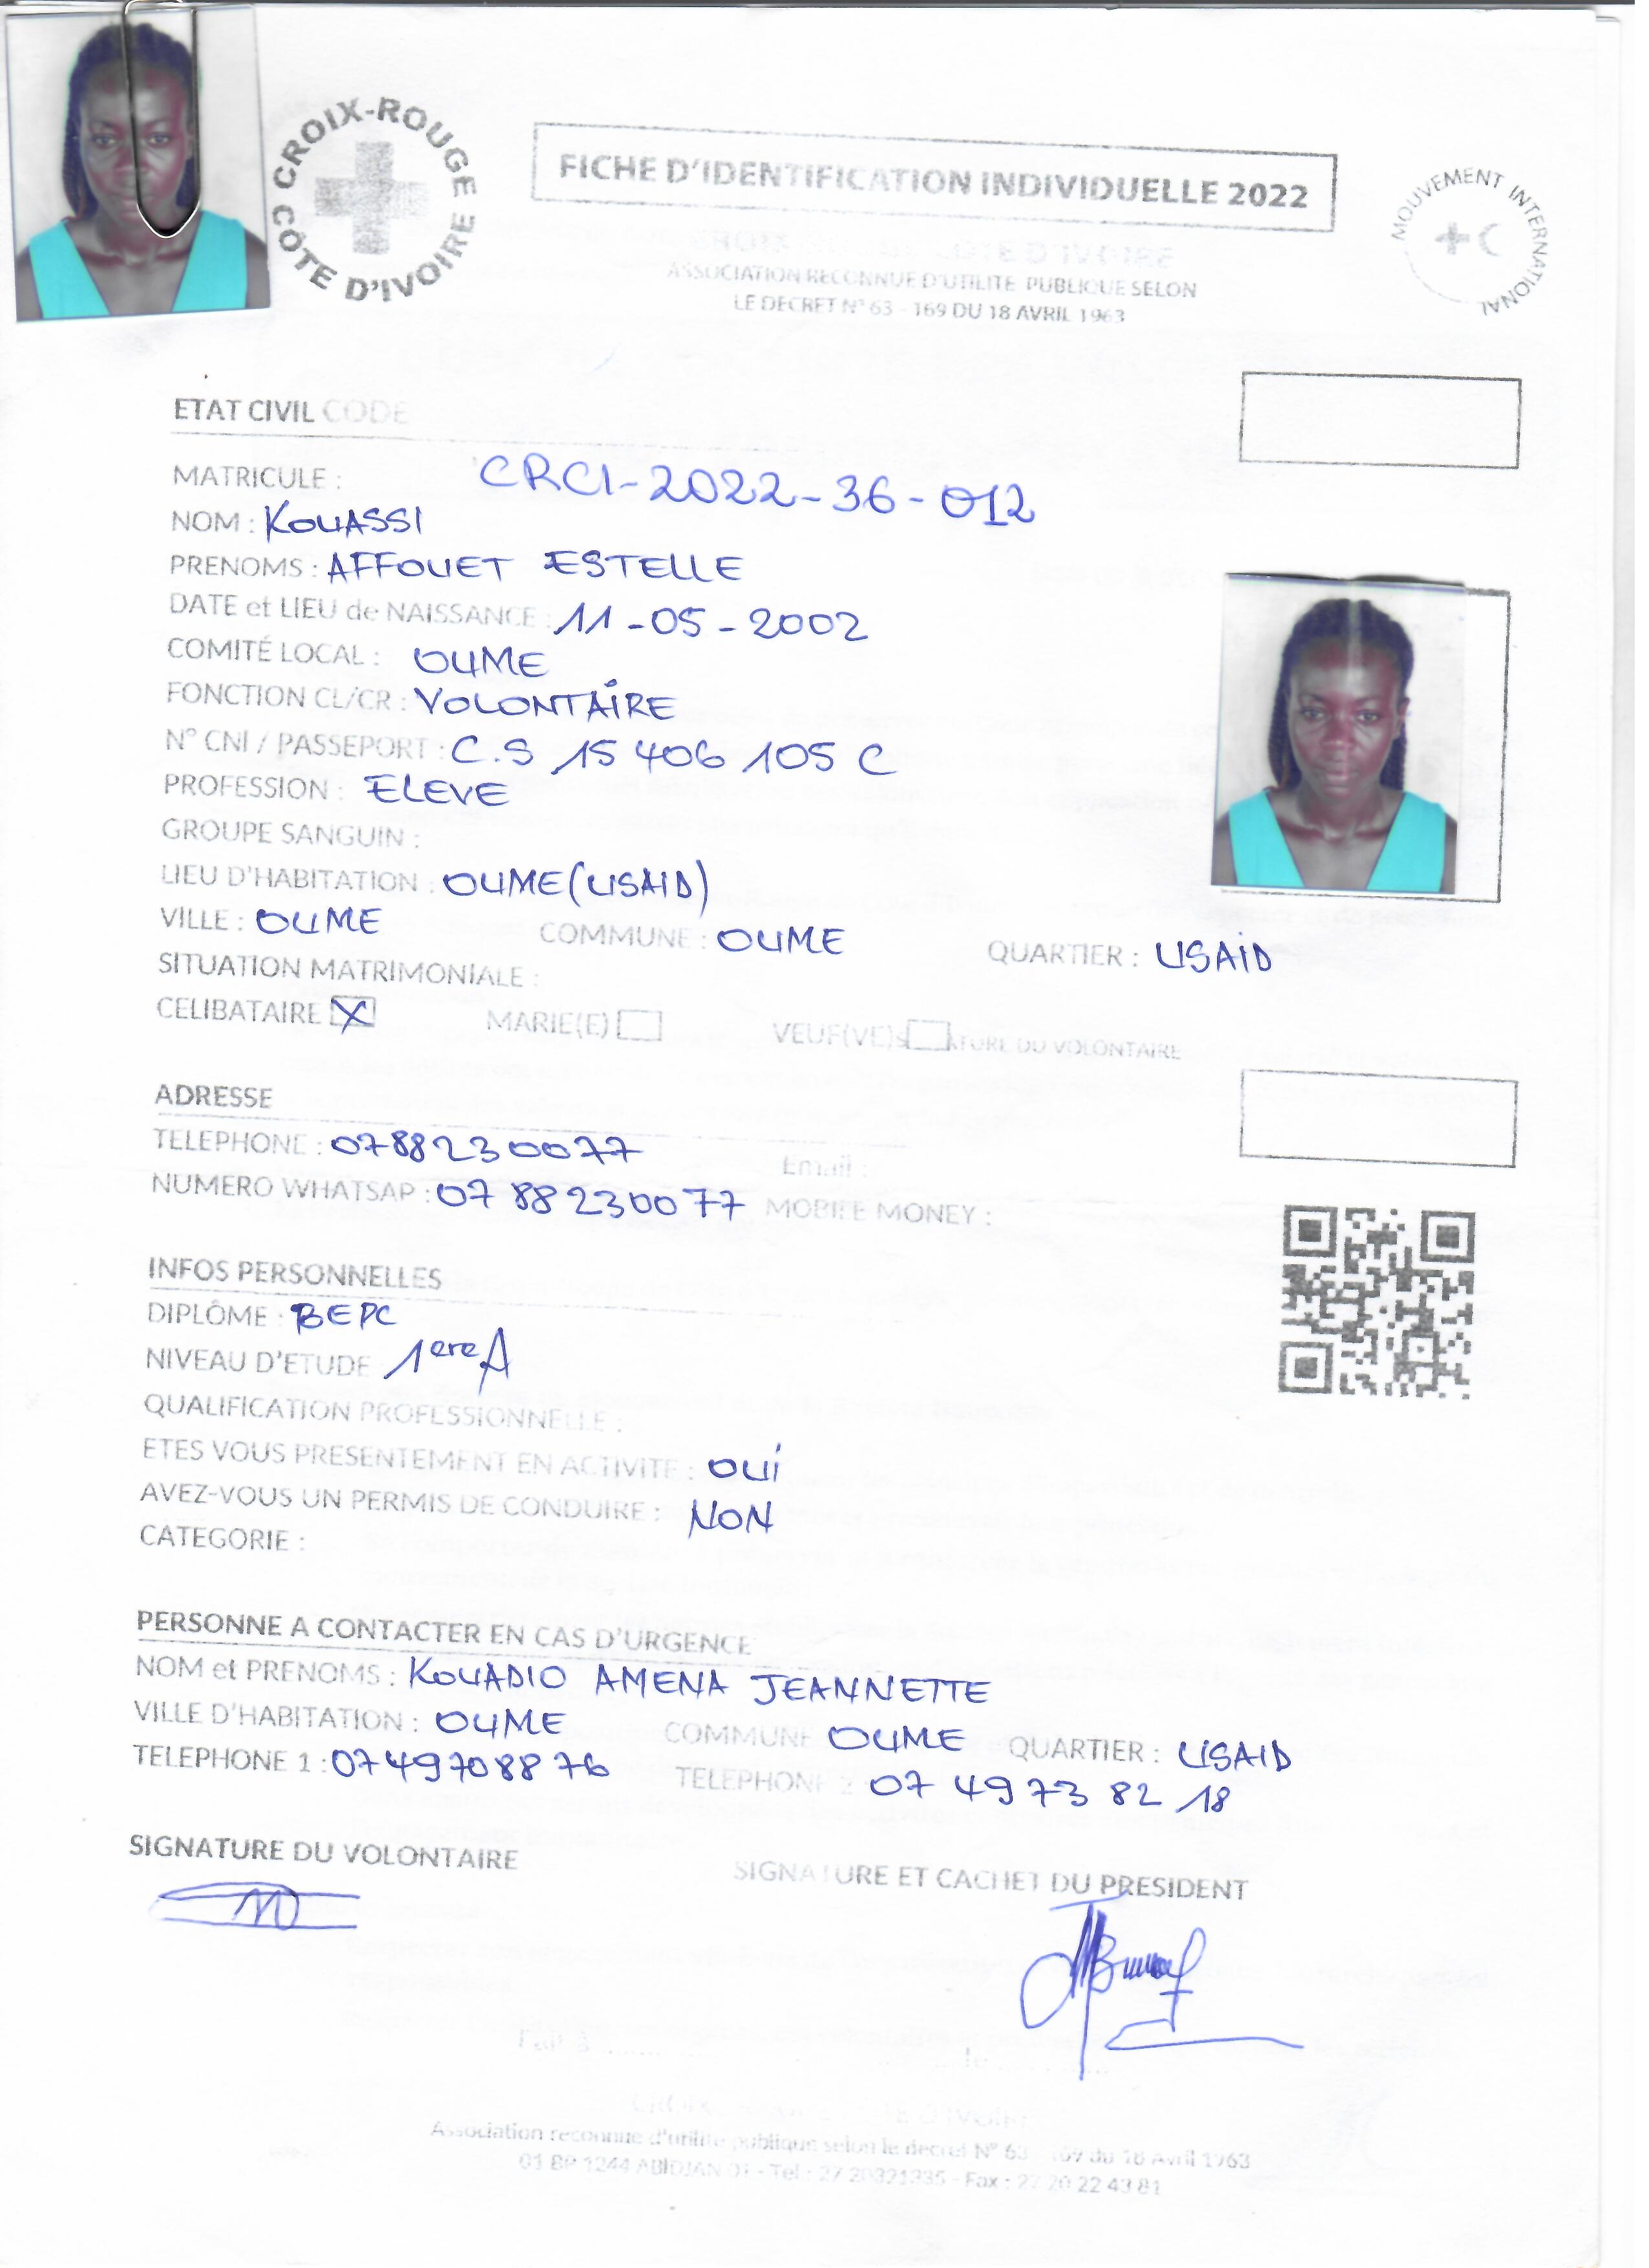 CROIX-ROUGE CÔTE D'IVOIRE
FICHE D'IDENTIFICATION INDIVIDUELLE 2022
MOUVEMENT INTERNATIONAL
CROIX CÔTE D'IVOIRE
ASSOCIATION RECONNUE D'UTILITE PUBLIQUE SELON
LE DECRET N° 63 - 169 DU 18 AVRIL 1963
ETAT CIVIL CODE
MATRICULE : CRCI-2022-36-012
NOM : KOUASSI
PRENOMS : AFFOUET ESTELLE
DATE et LIEU de NAISSANCE : 11-05-2002
COMITÉ LOCAL : OUME
FONCTION CL/CR : VOLONTAIRE
N° CNI / PASSEPORT : C.S 15 406 105 C
PROFESSION : ELEVE
GROUPE SANGUIN :
LIEU D'HABITATION : OUME (USAID)
VILLE : OUME COMMUNE : OUME QUARTIER : USAID
SITUATION MATRIMONIALE :
CELIBATAIRE X MARIE(E) VEUF(VE) SIGNATURE DU VOLONTAIRE
ADRESSE
TELEPHONE : 0788230077 Email :
NUMERO WHATSAP : 07 88 23 00 77 MOBILE MONEY :
INFOS PERSONNELLES
DIPLÔME : BEPC
NIVEAU D'ETUDE 1ere A
QUALIFICATION PROFESSIONNELLE :
ETES VOUS PRESENTEMENT EN ACTIVITE : OUI
AVEZ-VOUS UN PERMIS DE CONDUIRE : NON
CATEGORIE :
PERSONNE A CONTACTER EN CAS D'URGENCE
NOM et PRENOMS : KOUADIO AMENA JEANNETTE
VILLE D'HABITATION : OUME COMMUNE OUME QUARTIER : USAID
TELEPHONE 1 : 0749708876 TELEPHONE 2 : 07 49 73 82 18
SIGNATURE DU VOLONTAIRE SIGNATURE ET CACHET DU PRESIDENT
Association reconnue d'utilité publique selon le decret N° 63 169 du 18 Avril 1963
01 BP 1244 ABIDJAN 01 - Tel : 27 20321335 - Fax : 27 20 22 43 81